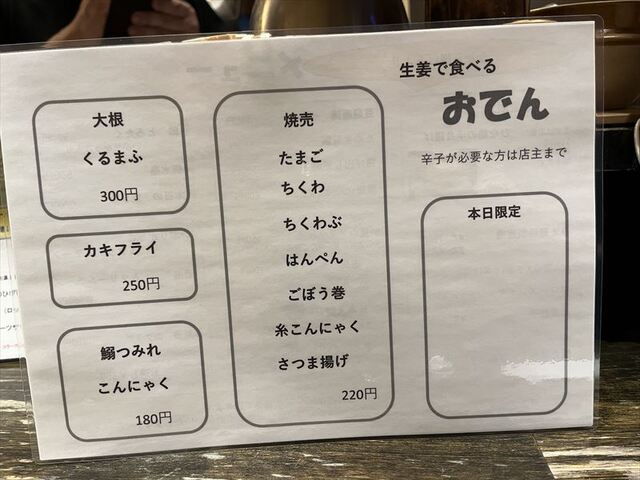 生姜で食べる
おでん
辛子が必要な方は店主まで
本日限定
焼売
たまご
ちくわ
ちくわぶ
はんぺん
ごぼう巻
糸こんにゃく
さつま揚げ
220円
大根
くるまふ
300円
カキフライ
250円
鰯つみれ
こんにゃく
180円